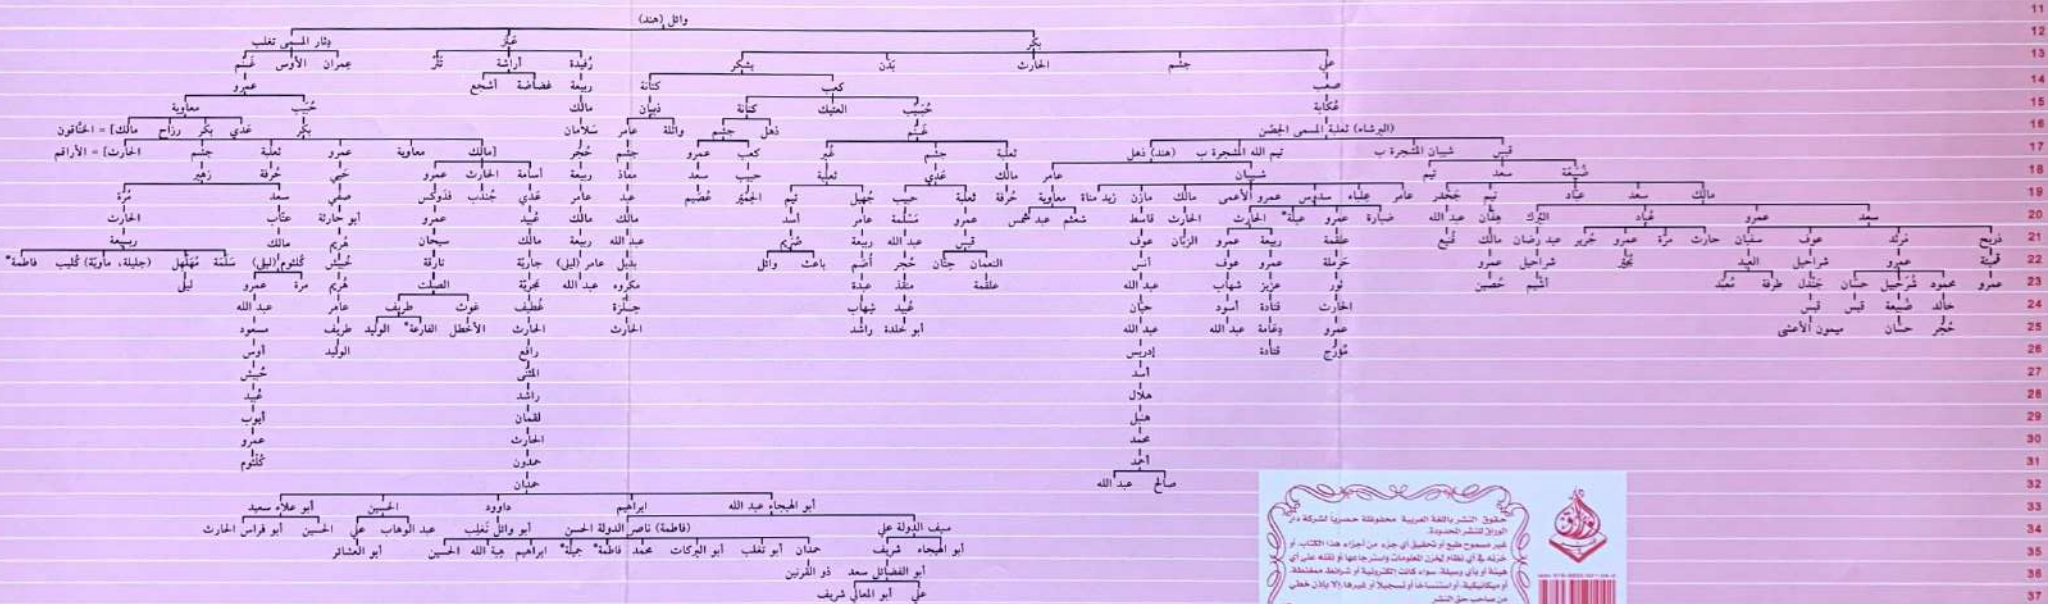 وائل (هند) 11
دثار المسمى تغلب عَنْز بكر 12
غَنْم الأوس عمران أراشة رُفيدة يشكر بَدَن الحارث جشم علي 13
عمرو أشجع غضاضة ربيعة كنانة كعب صعب 14
معاوية حُبَيْب مالك ذبيان كنانة العتيك حُبَيِّب عُكابة 15
مالك] = الخنّاقون رزاح بكر عَدي بكر سَلامان عامر واثلة جشم ذهل غَنْم (البرشاء) ثعلبة المسمى الحِصْن 16
الحارث] = الأراقم جشم ثعلبة عمرو معاوية [مالك حُجْر جشم عمرو كعب غُبَر جشم ثعلبة (هند) ذهل تيم الله الْمُشجرة ب شيبان الْمُشجرة ب قيس 17
زهير حُرفة حَيي عمرو الحارث أسامة ربيعة معاذ سعد حبيب ثعلبة عَدي مالك عامر شيبان تيم سعد ضُبَيْعَة 18
مُرّة سعد صفي فَدَوْكَس جُندب عَدي عامر عبد تيم جُهيل حبيب ثعلبة حُرفة معاوية زيد مناة مازن مالك عمرو الأعمى سدوس علباء عامر جَحْدَر تيم عبّاد سعد مالك 19
الحارث عتّاب أبو حارثة عمرو عُبيد مالك مالك أسد عامر مَسْلَمة عمرو عبد شمس شعثم قاسط الحارث الحارث عبلة* عمرو ضبارة عبد الله عُبَاد عمرو سعد 20
ربيعة مالك هُرَيم سيحان مالك ربيعة عبد الله صُرَيم ربيعة عبد الله قيس عوف الرَيّان عمرو ربيعة علقمة عبد رضان مالك جَرير عمرو مرّة حارث سفيان عوف مَرثد 21
فاطمة* (جليلة، ماوَيّة) كُليب مُهَلْهِل سَلَمَة كُلثوم (ليلى) حُبَيْش تارقة جارية عامر (ليلى) وائل باعث حُجْر النعمان أنس عوف عمرو حَرملة عمرو شراحيل العبد شراحيل عمرو 22
ليلى عمرو مرة هُرَيم الصلت عبد الله مكروه عبدة منقذ علقمة عبد الله شهاب عزيز ثور حُصَين مَعْبَد طرفة جَنْدَل حسّان شُرَحبيل محمود عمرو 23
عبد الله عامر طريف غوث غُطيف شهاب عُبيد حيّان أسود قتادة الحارث قيس قيس ضُبيعة خالد 24
مسعود طريف الوليد الفارعة* الأخطل الحارث الحارث راشد أبو خلدة عبد الله عبد الله دعامة عمرو ميمون الأعشى حسّان حُجْر 25
أوس الوليد رافع إدريس قتادة مُؤَرِّج 26
حُبيش المثنّى أسد 27
عُبيد راشد هلال 28
أيوب لقمان حنبل 29
عمرو الحارث محمد 30
كُلثوم حمدون أحمد 31
حمدان عبد الله صالح 32
أبو علاء سعيد الحسين داوود ابراهيم أبو الهيجاء عبد الله 33
أبو فراس الحارث الحسين علي عبد الوهاب أبو وائل تَغلِب (فاطمة) ناصر الدولة الحسن سيف الدولة علي 34
أبو العشائر الحسين هبة الله ابراهيم جميلة* فاطمة* محمد أبو البركات أبو تغلب حمدان شريف أبو الهيجاء 35
ذو القرنين أبو الفضائل سعد 36
أبو المعالي شريف علي 37
حقوق النشر باللغة العربية محفوظة حصرياً لشركة دار
الوراق للنشر المحدودة.
غير مسموح طبع أو تحقيق أي جزء من أجزاء هذا الكتاب، أو
خزنه في أي نظام لخزن المعلومات واسترجاعها أو نقله على أي
هيئة أو بأي وسيلة، سواء كانت الكترونية أو شرائط ممغنطة،
أو ميكانيكية، أو استنساخاً أو تسجيلاً أو غيرها إلا بإذن خطي
من صاحب حق النشر